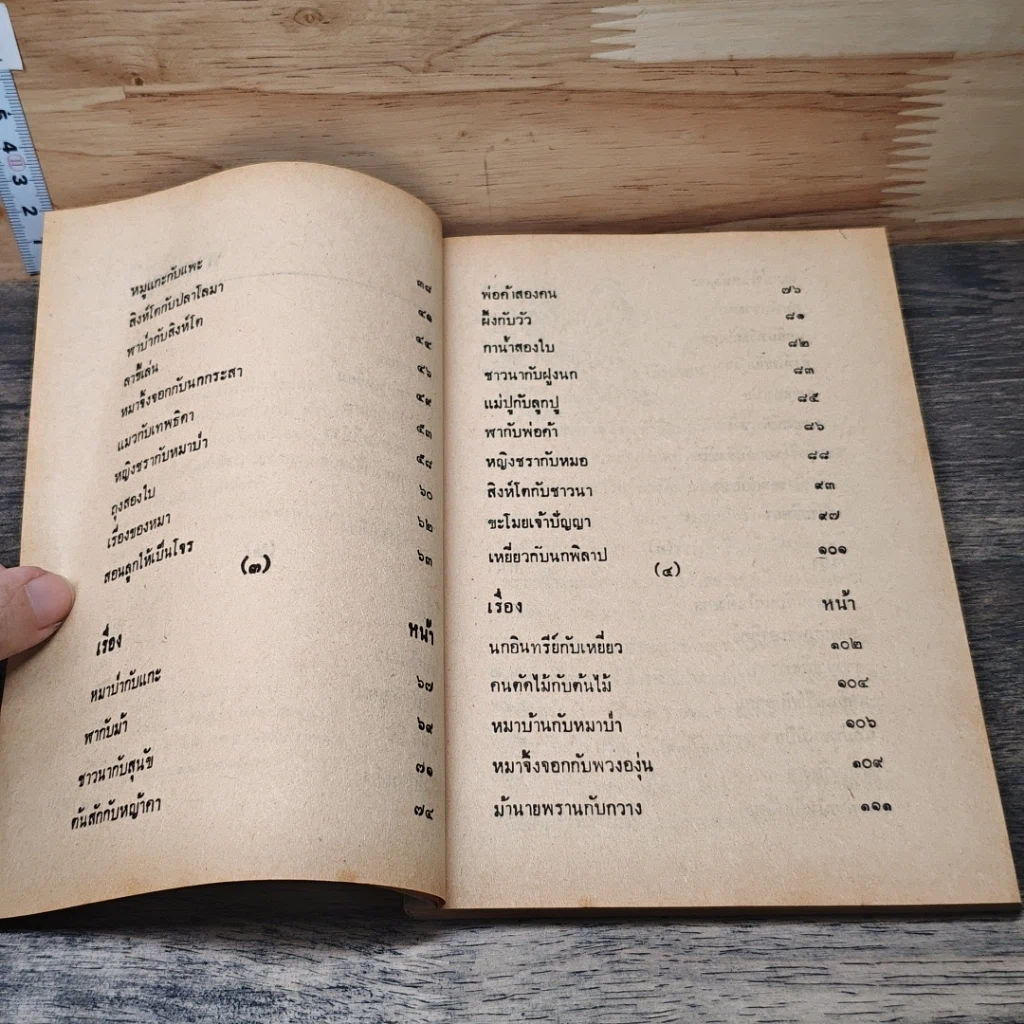 หมูแกะกับแพะ ๓๘
สิงห์โตกับปลาโลมา ๔๑
พาป่ากับสิงห์โต ๔๔
ลาขี้เล่น ๔๖
หมาจิ้งจอกกับนกกระสา ๔๙
แมวกับเทพธิดา ๕๓
หญิงชรากับหมาป่า ๕๘
ถุงสองใบ ๖๐
เรื่องของหมา ๖๒
สอนลูกให้เป็นโจร ๖๓
(๓)
เรื่อง หน้า
หมาป่ากับแกะ ๖๗
พากับม้า ๖๙
ชาวนากับสุนัข ๗๑
ต้นสักกับหญ้าคา ๗๔
พ่อค้าสองคน ๗๖
ผึ้งกับวัว ๘๑
กาน้ำสองใบ ๘๒
ชาวนากับฝูงนก ๘๓
แม่ปูกับลูกปู ๘๕
พากับพ่อค้า ๘๖
หญิงชรากับหมอ ๘๘
สิงห์โตกับชาวนา ๙๓
ขะโมยเจ้าปัญญา ๙๗
เหยี่ยวกับนกพิลาป ๑๐๑
(๔)
เรื่อง หน้า
นกอินทรีย์กับเหยี่ยว ๑๐๒
คนตัดไม้กับต้นไม้ ๑๐๔
หมาบ้านกับหมาป่า ๑๐๖
หมาจิ้งจอกกับพวงองุ่น ๑๐๙
ม้านายพรานกับกวาง ๑๑๑
5
4
3
2
1